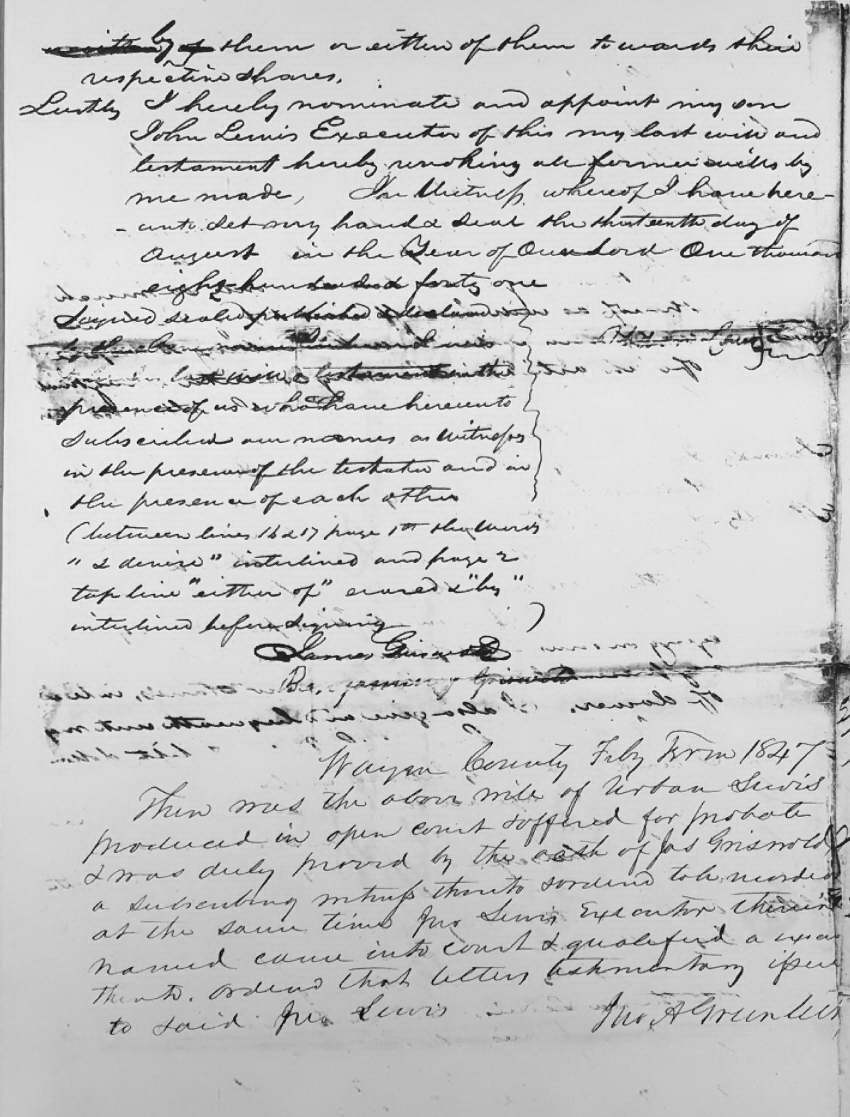 by them or either of them towards their
respective shares.
Lastly I hereby nominate and appoint my son
John Lewis Executor of this my last will and
testament hereby revoking all former wills by
me made, In Witness whereof I have here-
- unto set my hand & seal the thirteenth day of
August in the Year of Our Lord One thousand
eight hundred & forty one
Signed sealed published & declared
by the
last will & testament in the
presence of us who have hereunto
subscribed our names as Witnesses
in the presence of the testator and in
the presence of each other
(between lines 16 & 17 page 1st the words
"& devise" interlined and page 2
top line "either of" erased & "by"
interlined before signing )
James Griswold
Wayne County Feby Term 1847
Then was the above will of Urban Lewis
produced in open court & offered for probate
& was duly proved by the oath of Jas Griswold
a subscribing witness thereto & ordered to be recorded
at the same time Jno Lewis Executor therein
named came into court & qualified a
thereto. ordered that letters testamentary issue
to said Jno Lewis
Jno A Green